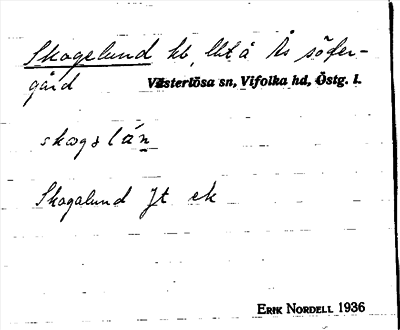 Skogslund hb, lht å Ås söfer-
gård Västerlösa sn, Vifolka hd, Östg. l.
skogslán
Skogalund Jt ek
ERIK NORDELL 1936